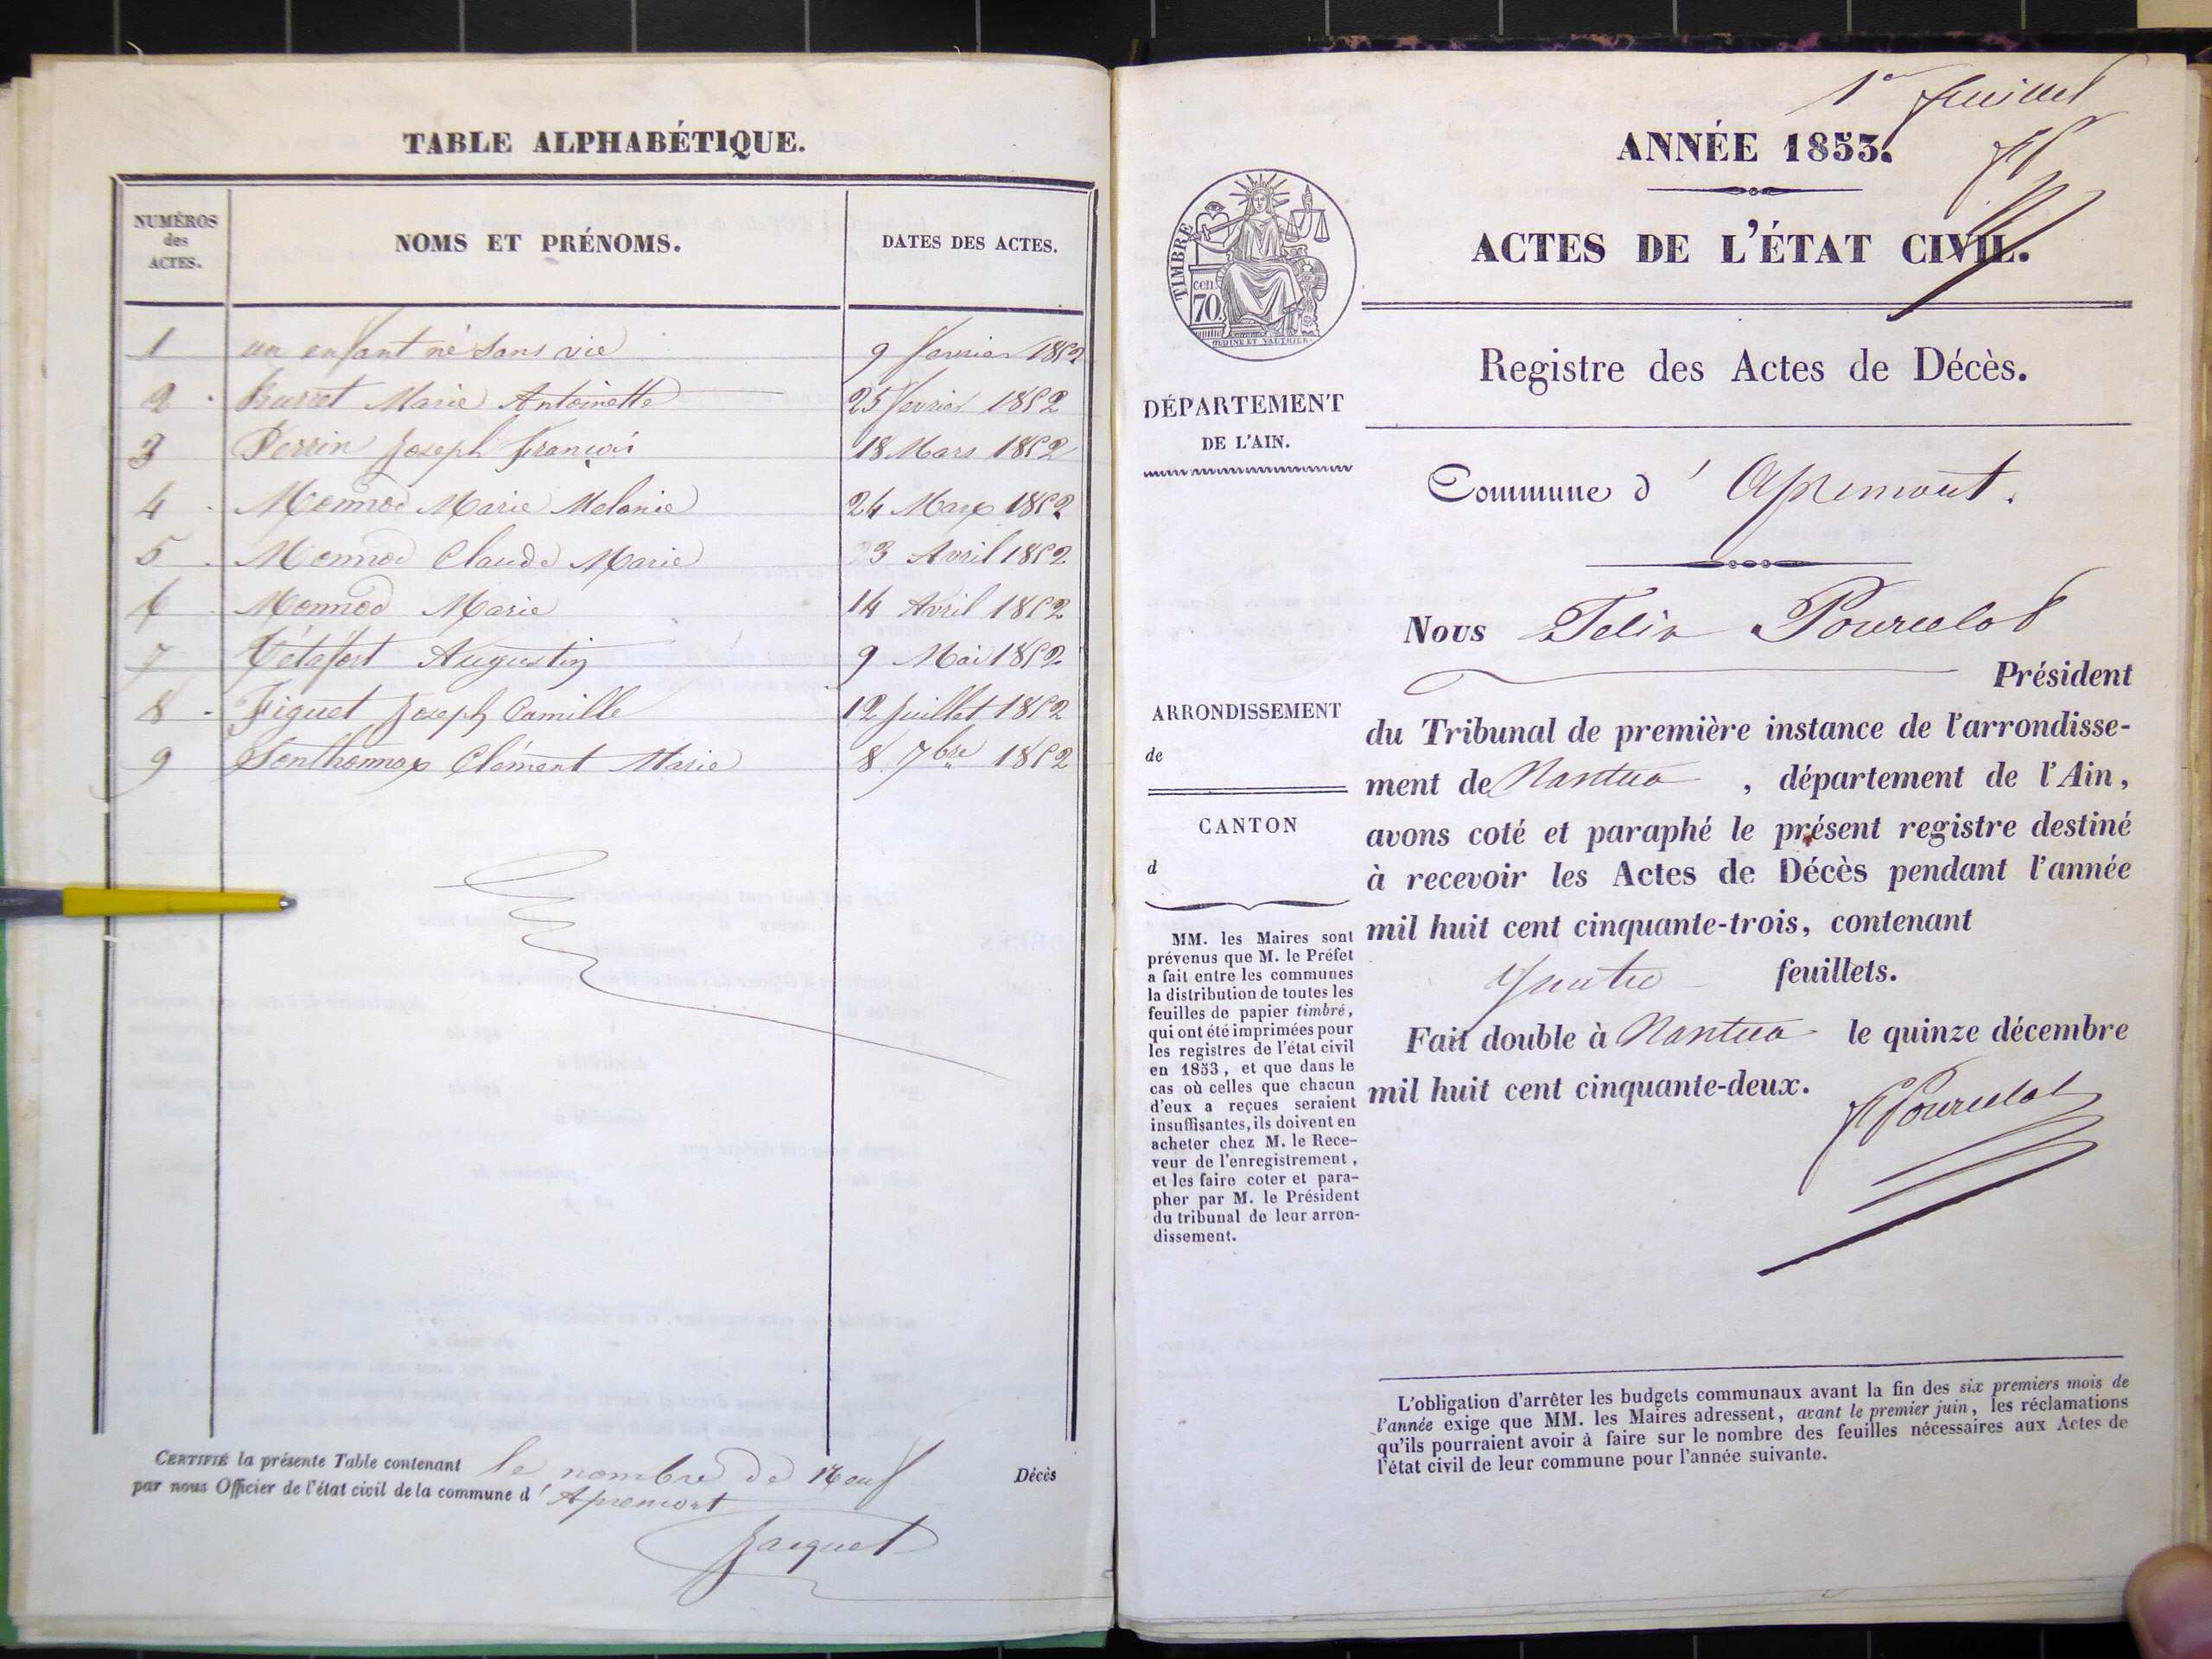 TABLE ALPHABÉTIQUE.
NUMÉROS des ACTES. NOMS ET PRÉNOMS. DATES DES ACTES.
1 un enfant né sans vie 9 fevrier 1852
2 Burret Marie Antoinette 25 fevrier 1852
3 Perrin Joseph François 18 Mars 1852
4 Monnod Marie Melanie 24 Mars 1852
5 Monnod Claude Marie 3 Avril 1852
6 Monnod Marie 14 Avril 1852
7 Tétafort Augustin 9 Mai 1852
8 Figuet Joseph Camille 12 Juillet 1852
9 Sonthonnax Clément Marie 8 7bre 1852
CERTIFIÉ la présente Table contenant le nombre de Neuf Décès
par nous Officier de l'état civil de la commune d' Apremont
Jacquet
1er feuillet
ANNÉE 1853.
ACTES DE L'ÉTAT CIVIL.
TIMBRE
cen. 70.
OUDINE ET VAUTHIER
Registre des Actes de Décès.
DÉPARTEMENT
DE L'AIN.
Commune d' Apremont.
Nous Felix Pourcelot
Président
ARRONDISSEMENT
de
CANTON
d
du Tribunal de première instance de l'arrondisse-
ment de Nantua, département de l'Ain,
avons coté et paraphé le présent registre destiné
à recevoir les Actes de Décès pendant l'année
mil huit cent cinquante-trois, contenant
quatre feuillets.
Fait double à Nantua le quinze décembre
mil huit cent cinquante-deux.
F Pourcelot
MM. les Maires sont
prévenus que M. le Préfet
a fait entre les communes
la distribution de toutes les
feuilles de papier timbré,
qui ont été imprimées pour
les registres de l'état civil
en 1853, et que dans le
cas où celles que chacun
d'eux a reçues seraient
insuffisantes, ils doivent en
acheter chez M. le Rece-
veur de l'enregistrement,
et les faire coter et para-
pher par M. le Président
du tribunal de leur arron-
dissement.
L'obligation d'arrêter les budgets communaux avant la fin des six premiers mois de
l'année exige que MM. les Maires adressent, avant le premier juin, les réclamations
qu'ils pourraient avoir à faire sur le nombre des feuilles nécessaires aux Actes de
l'état civil de leur commune pour l'année suivante.